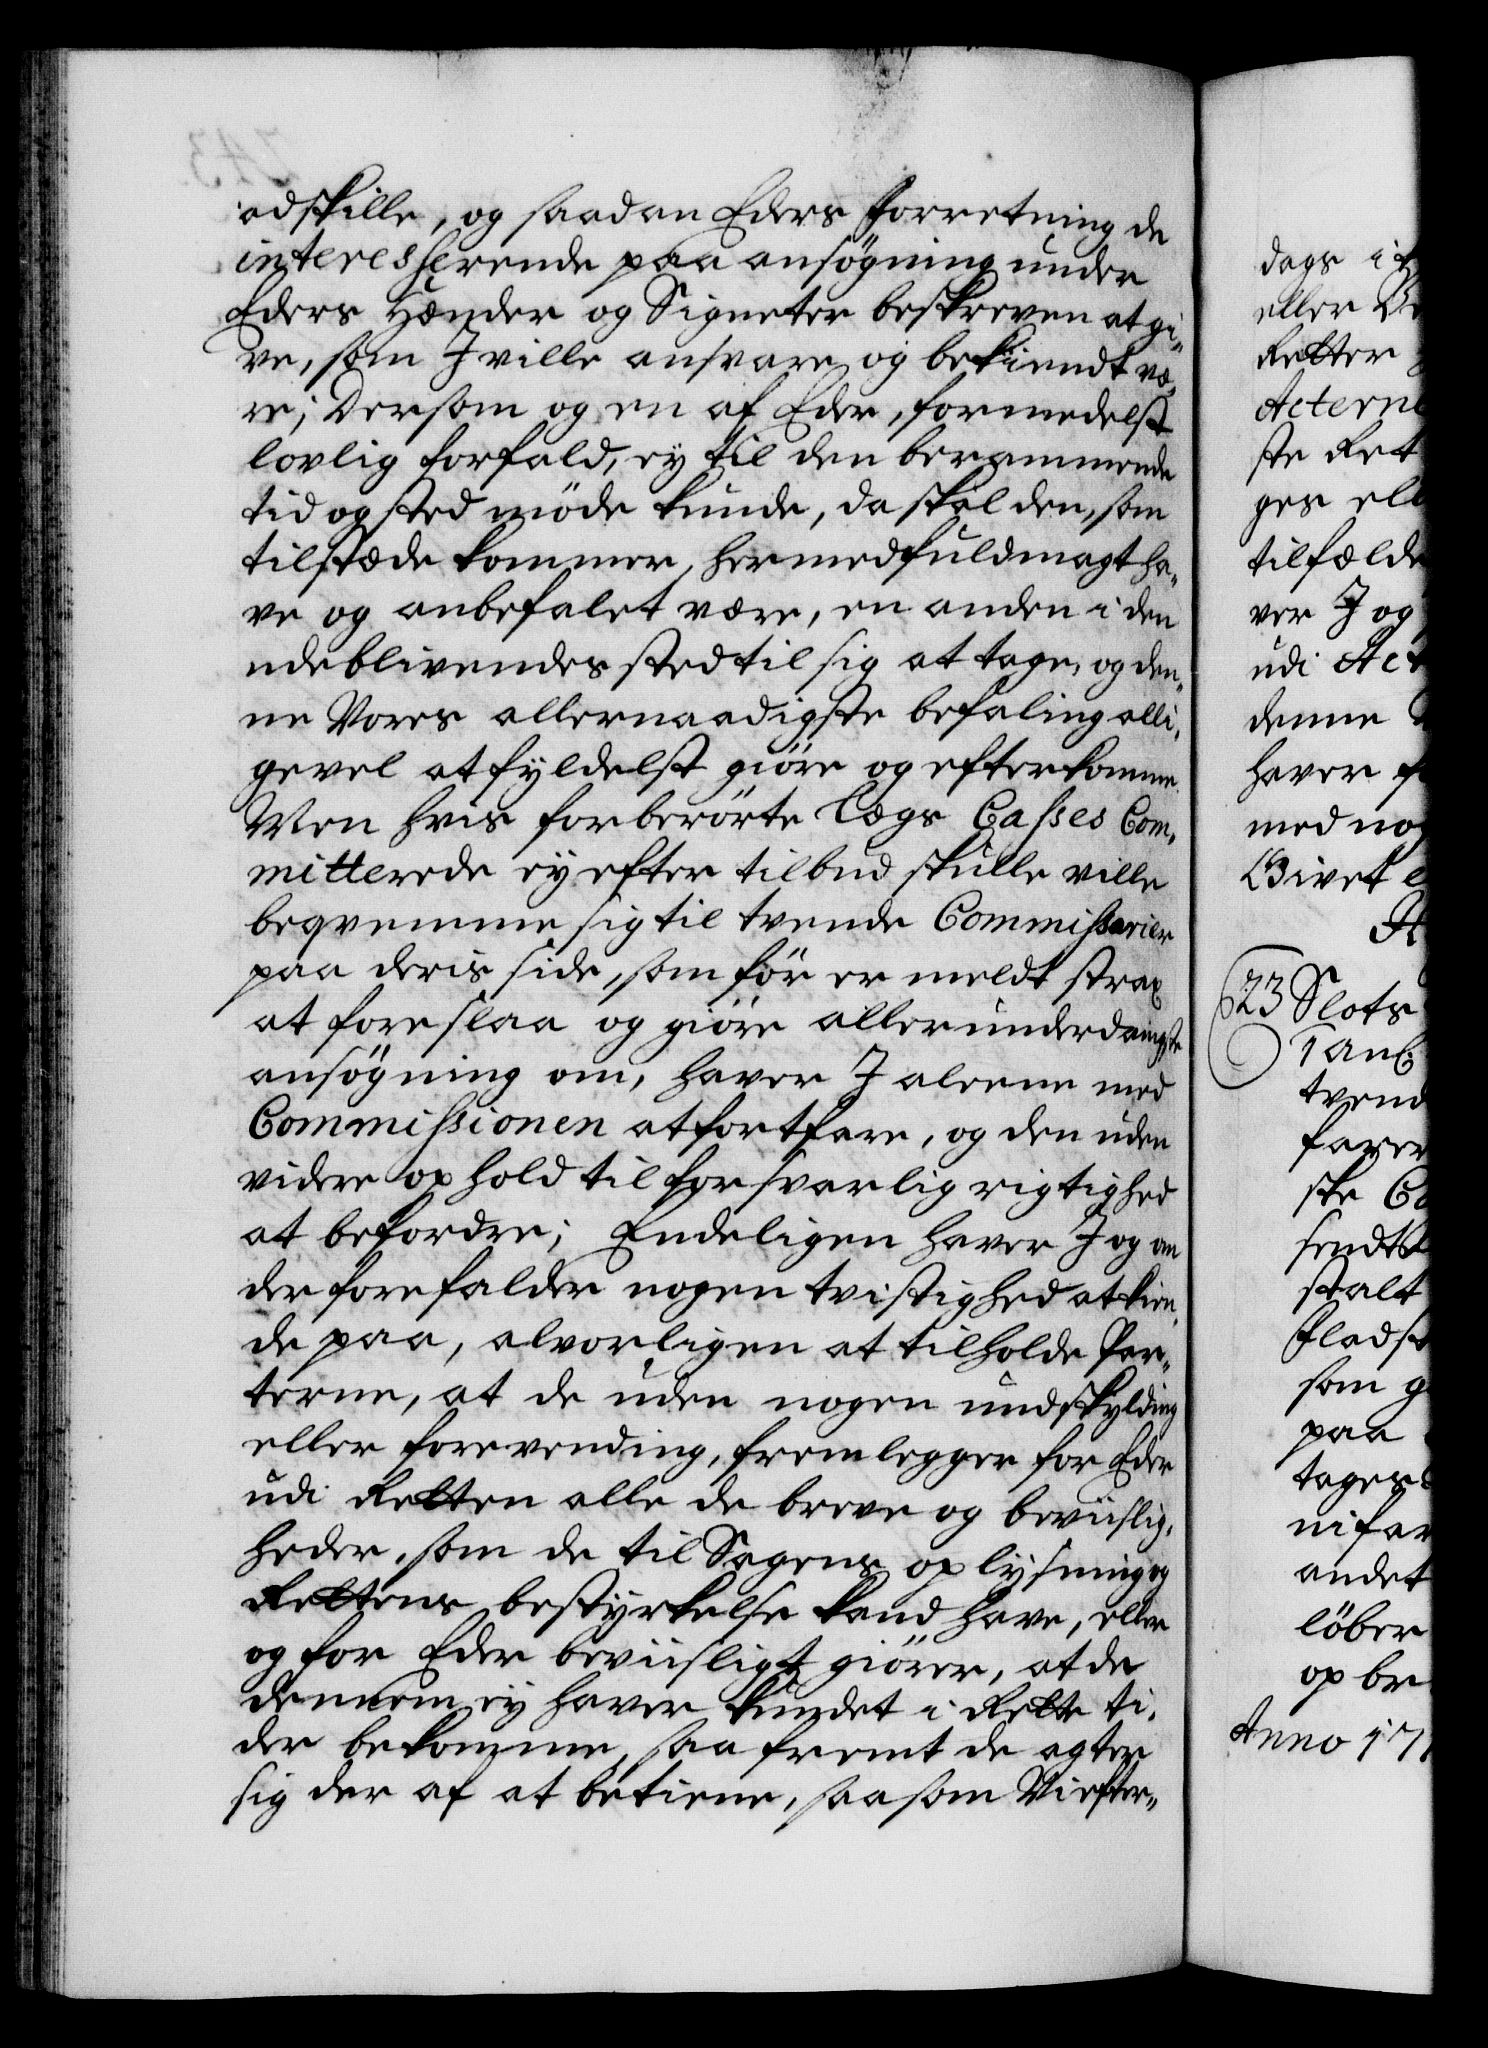 adskille, og saadan Eders Forretning de
interesserende paa ansøgning under
Eders Hænder og Signeter beskreven at gi-
ve, som I ville ansvare og bekiendt væ-
re; Dersom og en af Eder, formedelst
lovlig forfald, ey til den berammende
tid og sted møde kunde, da skal den, som
tilstæde kommer, hermed fuldmagt ha-
ve og anbefalet være, en anden i den
udeblivendes sted til sig at tage, og den-
ne Vores allernaadigste befaling alli-
gevel at fyldelst giøre og efterkomme.
Men hvis forberørte Lægs Casses Com-
mitterede ey efter tilbud skulle ville
beqvemme sig til tvende Commissarier
paa deris side, som før er meldt strax
at foreslaa og giøre allerunderdanigste
ansøgning om, haver I aleene med
Commissionen at fortfare, og den uden
videre ophold til forsvarlig rigtighed
at befordre; Endeligen haver I og om
der forefalder nogen tvistighed at kien-
de paa, alvorligen at tilholde Par-
terne, at de uden nogen undskylding
eller forevending, fremlegger for Eder
udi Retten alle de breve og beviislig-
heder, som de til Sagens oplysning og
Rettens bestyrkelse kand have, eller
og for Eder beviisligt giører, at de
dennem ey haver kundet i Rette ti-
der bekomme, saa fremt de agter
sig der af at betiene, saasom Vi efter-
dags i
eller
Retter
Acterne
ste Ret
ges
tilfælde
ver I og
udi Act
denne
haver
med nog
Givet
23 Slots
tvend
farer
ske
sendt
stalt
Fladst
som
paa
tages
andet
løber
op
Anno 17